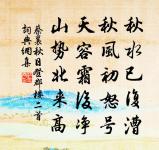 秋水已復漕
秋風初怒号
天容霜後净
山势北来高
蔡襄秋日登郡樓二首
詞典網集